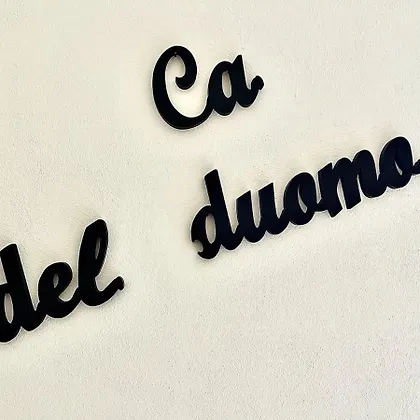 Ca
del duomo